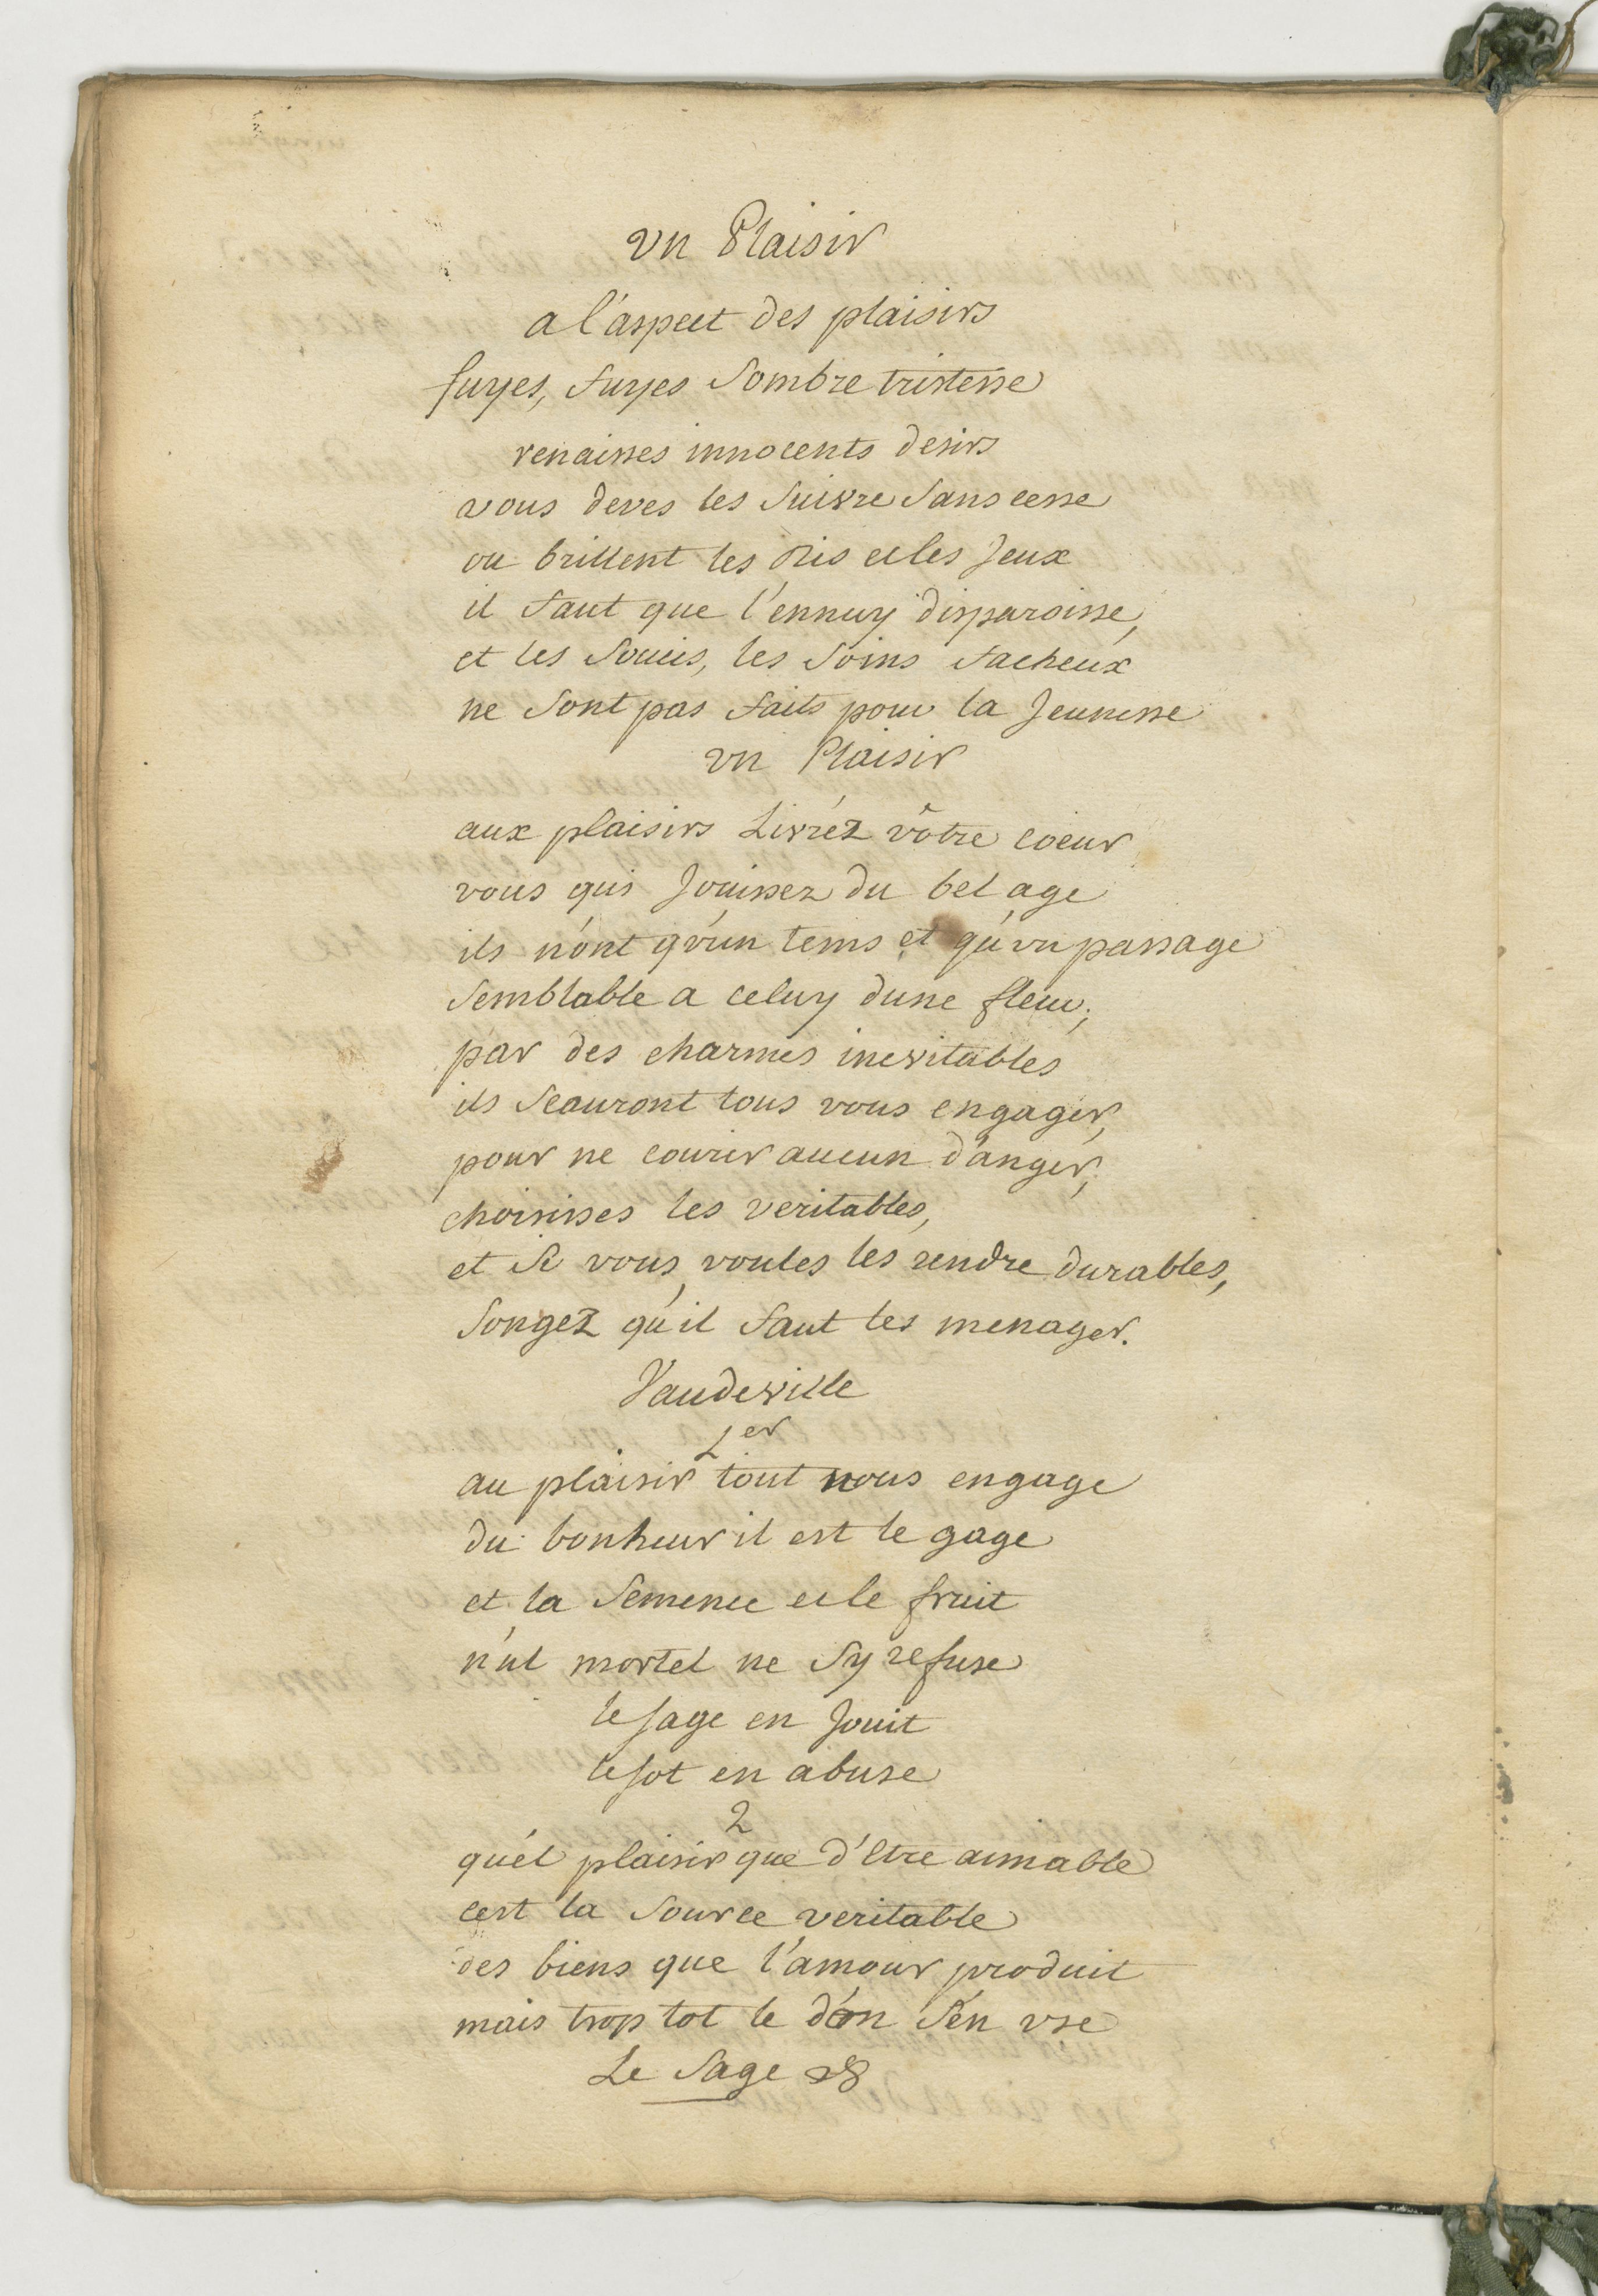 vn Plaisir
a l'aspect des plaisirs
fuyes, fuyes Sombre tristesse
renaisses innocents desirs
vous deves les Suivre Sans cesse
ou brillent les Ris et les Jeux
il faut que l'ennuy disparoisse,
et les Soucis, les Soins facheux
ne Sont pas faits pour la Jeunesse
vn Plaisir
aux plaisirs Livréz vôtre coeur
vous qui Jouissez du bel age
ils n'ont qu'un tems et qu'vn passage
Semblable a celuy dune fleur;
par des charmes inevitables
ils Scauront tous vous engager,
pour ne courir aucun danger,
choisisses les veritables,
et Si vous voules les rendre durables,
Songez qu'il faut les menager.
Vaudeville
1er
au plaisir tout nous engage
du bonheur il est le gage
et la Semence et le fruit
nul mortel ne Sy refuse
le Sage en Jouit
le Sot en abuse
2
quel plaisir que d'Etre aimable
cest la Source veritable
des biens que l'amour produit
mais trop tot le don S'en vse
Le Sage &